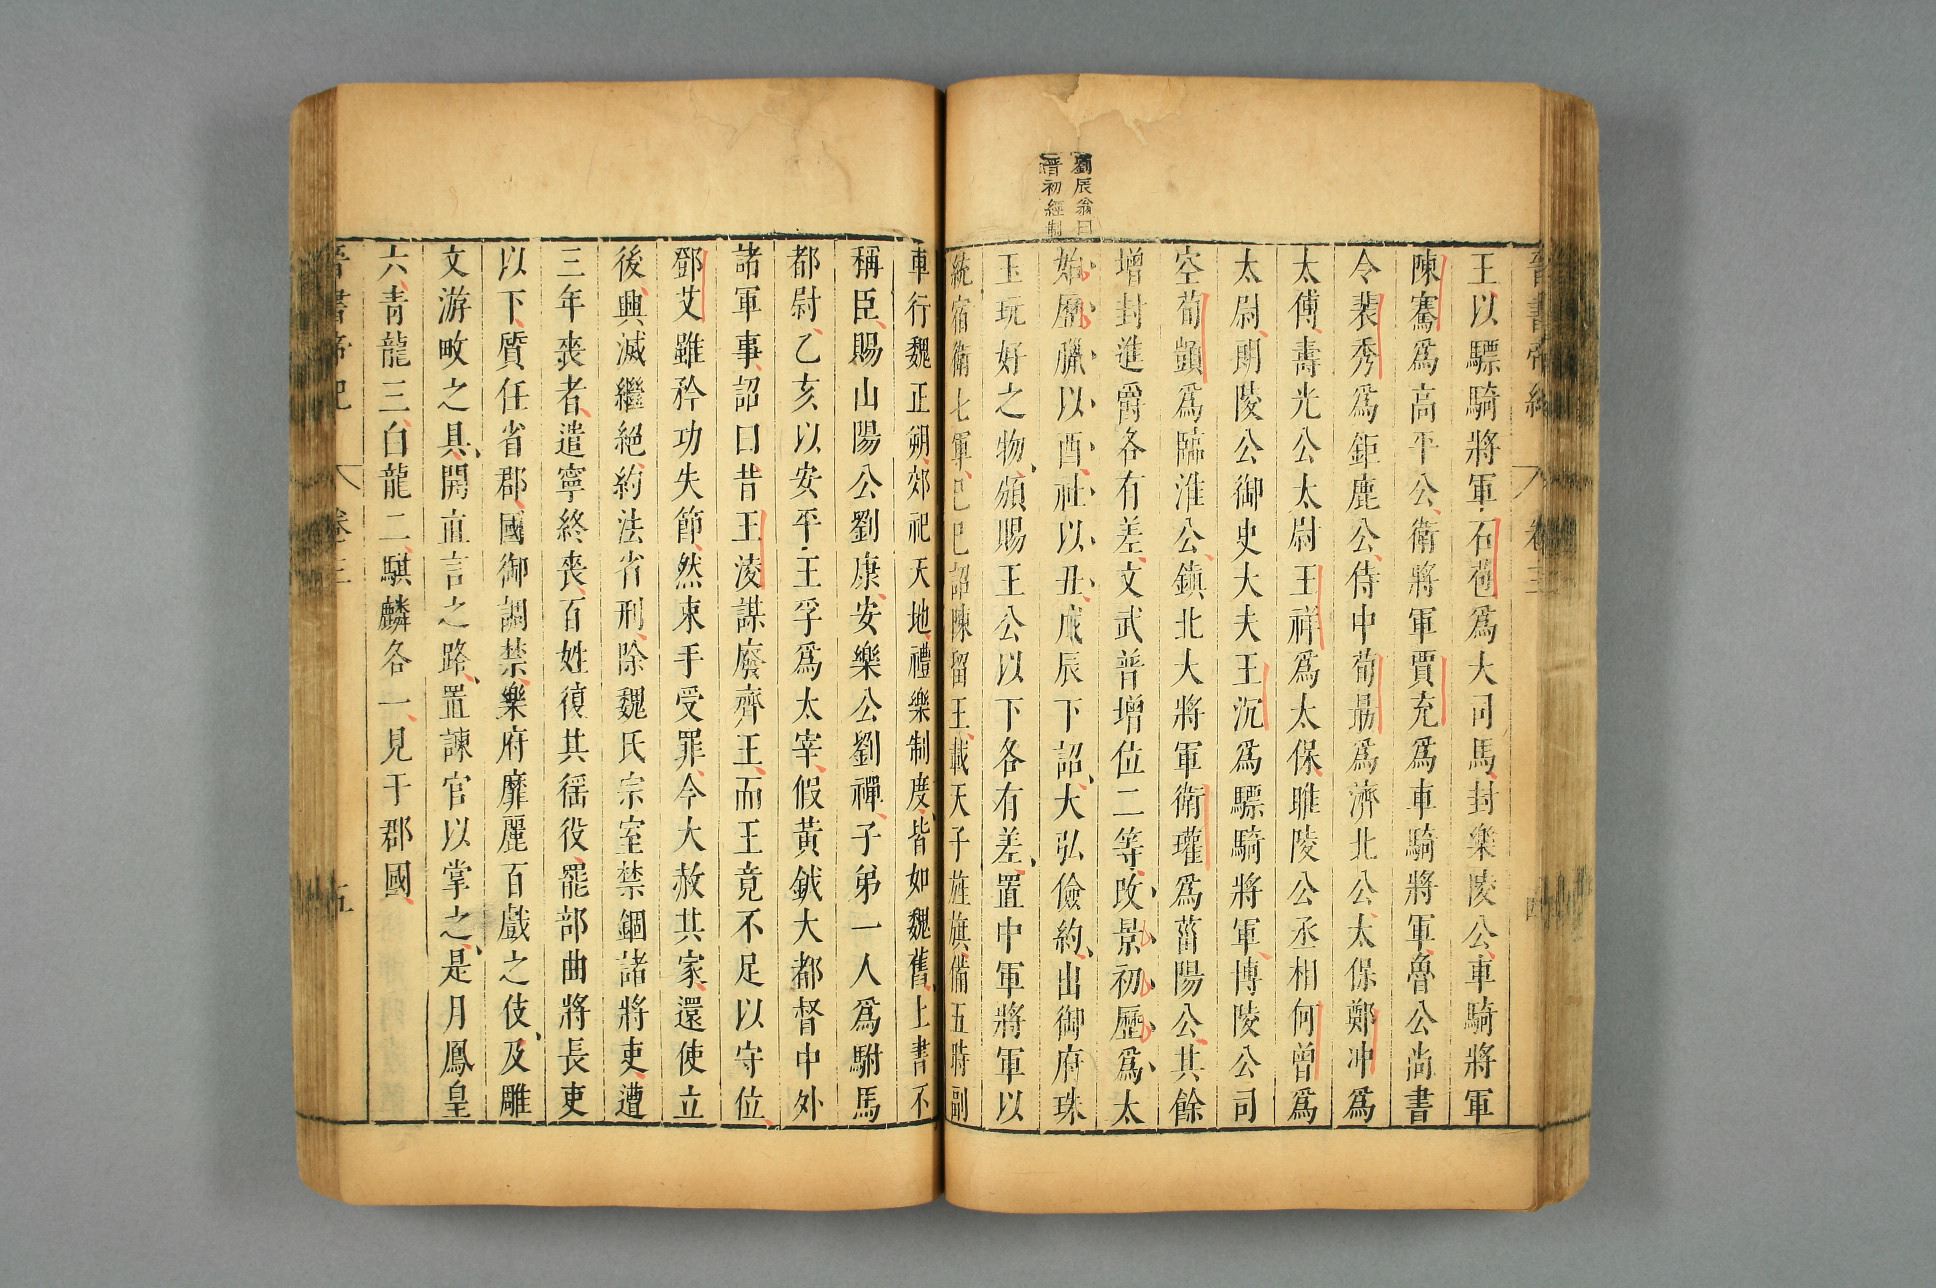 劉辰翁曰
晋初經制
王以驃騎將軍石苞爲大司馬封樂陵公車騎將軍
陳騫爲高平公衛將軍賈充爲車騎將軍魯公尚書
令裴秀爲鉅鹿公侍中荀勗爲濟北公太保鄭冲爲
太傅壽光公太尉王祥爲太保睢陵公丞相何曾爲
太尉朗陵公御史大夫王沉爲驃騎將軍博陵公司
空荀顗爲臨淮公鎮北大將軍衛瓘爲菑陽公其餘
增封進爵各有差文武普增位二等改景初曆爲太
始曆臘以酉社以丑戊辰下詔大弘儉約出御府珠
玉玩好之物頒賜王公以下各有差置中軍將軍以
統宿衛七軍己巳詔陳留王載天子旌旗備五時副
車行魏正朔郊祀天地禮樂制度皆如魏舊上書不
稱臣賜山陽公劉康安樂公劉禪子弟一人爲駙馬
都尉乙亥以安平王孚爲太宰假黃鉞大都督中外
諸軍事詔曰昔王淩謀廢齊王而王竟不足以守位
鄧艾雖矜功失節然束手受罪今大赦其家還使立
後興滅繼絕約法省刑除魏氏宗室禁錮諸將吏遭
三年喪者遣寧終喪百姓復其徭役罷部曲將長吏
以下質任省郡國御調禁樂府靡麗百戲之伎及雕
文游畋之具開直言之路置諫官以掌之是月鳳皇
六青龍三白龍二騏麟各一見于郡國
晉書帝紀 卷三 五